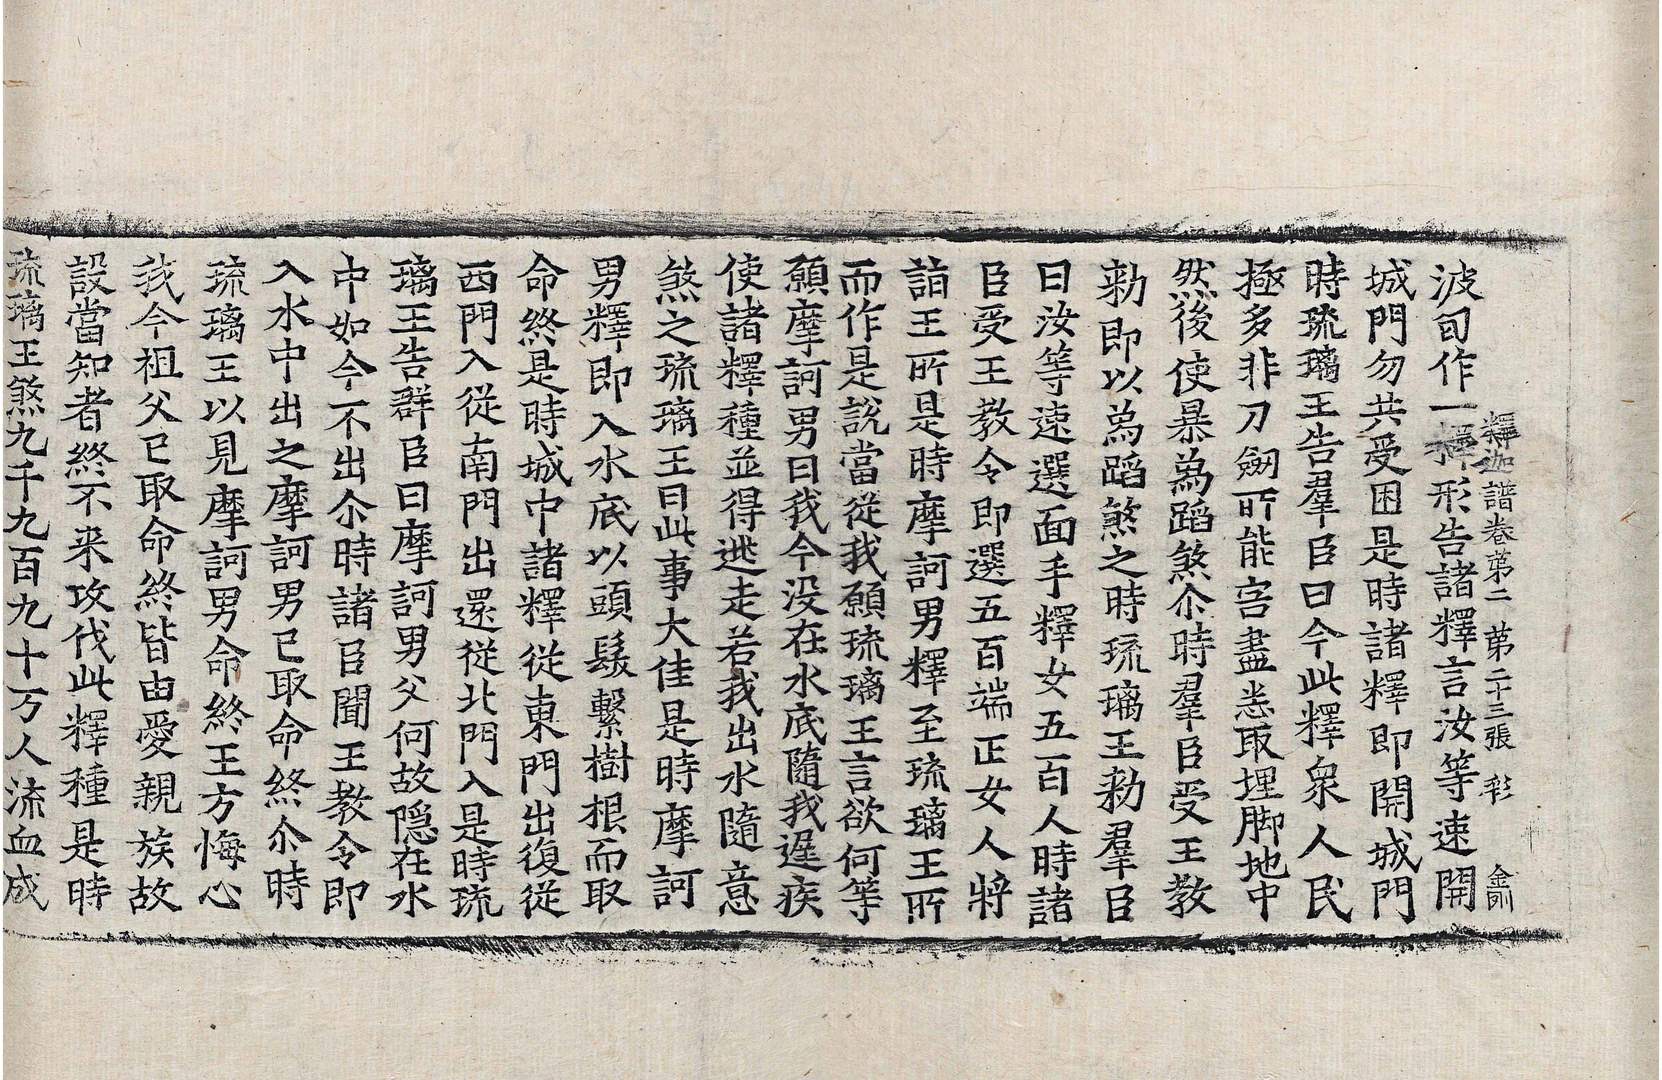 釋迦譜卷苐二 苐二十三張 彩
波旬作一釋形告諸釋言汝等速開
城門勿共受困是時諸釋即開城門
時琉璃王告羣臣曰今此釋衆人民
極多非刀劒所能害盡悉取埋脚地中
然後使暴爲蹈煞尒時羣臣受王教
勑即以爲蹈煞之時琉璃王勑羣臣
曰汝等速選面手釋女五百人時諸
臣受王教令即選五百端正女人將
詣王所是時摩訶男釋至琉璃王所
而作是說當從我願琉璃王言欲何等
願摩訶男曰我今没在水底隨我遅疾
使諸釋種並得逃走若我出水隨意
煞之琉璃王曰此事大佳是時摩訶
男釋即入水底以頭髮繫樹根而取
命終是時城中諸釋從東門出復從
西門入從南門出還從北門入是時琉
璃王告群臣曰摩訶男父何故隐在水
中如今不出尒時諸臣聞王教令即
入水中出之摩訶男已取命終尒時
琉璃王以見摩訶男命終王方悔心
我今祖父已取命終皆由愛親族故
設當知者終不来攻伐此釋種是時
琉璃王煞九千九百九十万人流血成